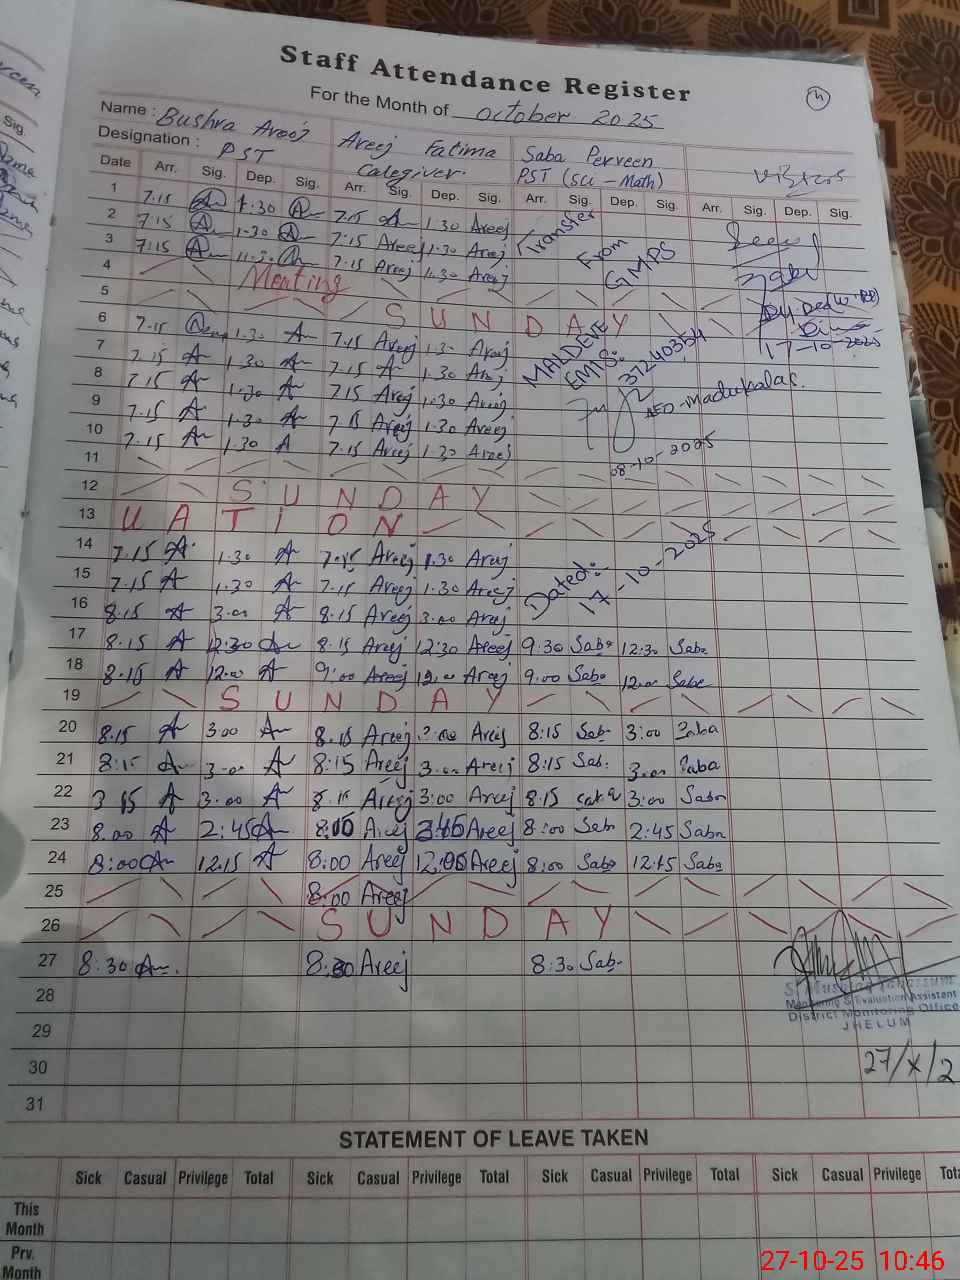 Staff Attendance Register
For the Month of October 2025
Name : Bushra Areej Areej Fatima Saba Perveen
Designation : PST Caregiver. PST (Sci - Math) Visitors
Date Arr. Sig. Dep. Sig. Arr. Sig. Dep. Sig. Arr. Sig. Dep. Sig. Arr. Sig. Dep. Sig.
1 7.15 1.30 7.15 1.30 Areej Transfer From GMPS
2 7:15 1.30 7:15 Areej 1.30 Areej
3 7:15 11.30 7.15 Areej 1.30 Areej
4 Meating
5 S U N D A Y
6 7.15 1.30 7.15 Areej 1.30 Areej
7 7.15 A 1.30 A 7.15 A 1.30 Areej
8 7.15 A 1.30 A 7.15 Areej 1.30 Areej
9 7.15 A 1.30 A 7.15 Areej 1.30 Areej
10 7.15 A 1.30 A 7.15 Areej 1.30 Areej
EMIS:- 37240354
AEO-Madukalas.
08-10-2025
17-10-2025
11
12 S U N D A Y
13 U A T I O N
14 7.15 A 1.30 A 7.15 Areej 1.30 Areej
15 7.15 A 1.30 A 7.15 Areej 1.30 Areej
Dated:- 17-10-2025
16 8.15 A 3.00 A 8.15 Areej 3.00 Areej
17 8.15 A 12:30 A 8.15 Areej 12:30 Areej 9:30 Saba 12:30 Saba
18 8.15 A 12.00 A 9:00 Areej 12.00 Areej 9.00 Saba 12.00 Saba
19 S U N D A Y
20 8.15 A 3.00 A 8.15 Areej 3:00 Areej 8:15 Sab 3:00 Saba
21 8:15 A 3.00 A 8:15 Areej 3.00 Areej 8:15 Sab. 3.00 Saba
22 A 3.00 A 8.15 Areej 3:00 Areej 8:15 Saba 3:00 Saba
23 8.00 A 2:45 A 8:00 Areej Areej 8:00 Sab 2:45 Saba
24 8:00 A 12.15 A 8:00 Areej Areej 8:00 Saba 12:15 Saba
25 8.00 Areej
26 S U N D A Y
27 8:30 A 8:30 Areej 8:30 Sab.
28
29
30
31
Monitoring & Evaluation Assistant
District Monitoring Office
JHELUM
27/X/2
STATEMENT OF LEAVE TAKEN
Sick Casual Privilege Total Sick Casual Privilege Total Sick Casual Privilege Total Sick Casual Privilege
This Month
Prv. Month
27-10-25 10:46